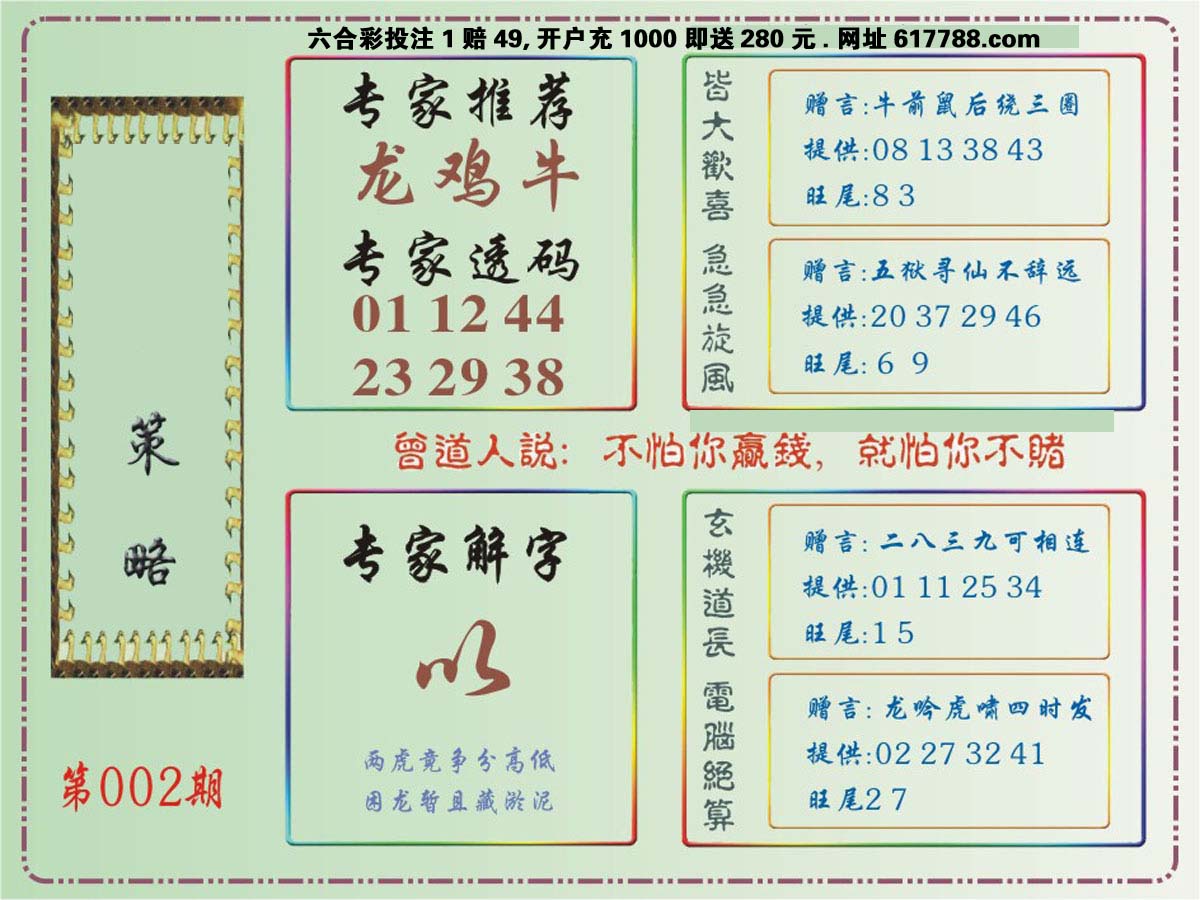 六合彩投注 1 赔 49, 开户充 1000 即送 280 元 . 网址 617788.com
策略
第002期
专家推荐
龙鸡牛
专家透码
01 12 44
23 29 38
皆大歡喜
赠言:牛前鼠后绕三圈
提供:08 13 38 43
旺尾:8 3
急急旋風
赠言:五狱寻仙不辞远
提供:20 37 29 46
旺尾: 6 9
曾道人説: 不怕你贏錢, 就怕你不賭
专家解字
以
两虎竞争分高低
困龙暂且藏淤泥
玄機道長
赠言: 二八三九可相连
提供:01 11 25 34
旺尾:1 5
電腦絕算
赠言: 龙吟虎啸四时发
提供:02 27 32 41
旺尾2 7